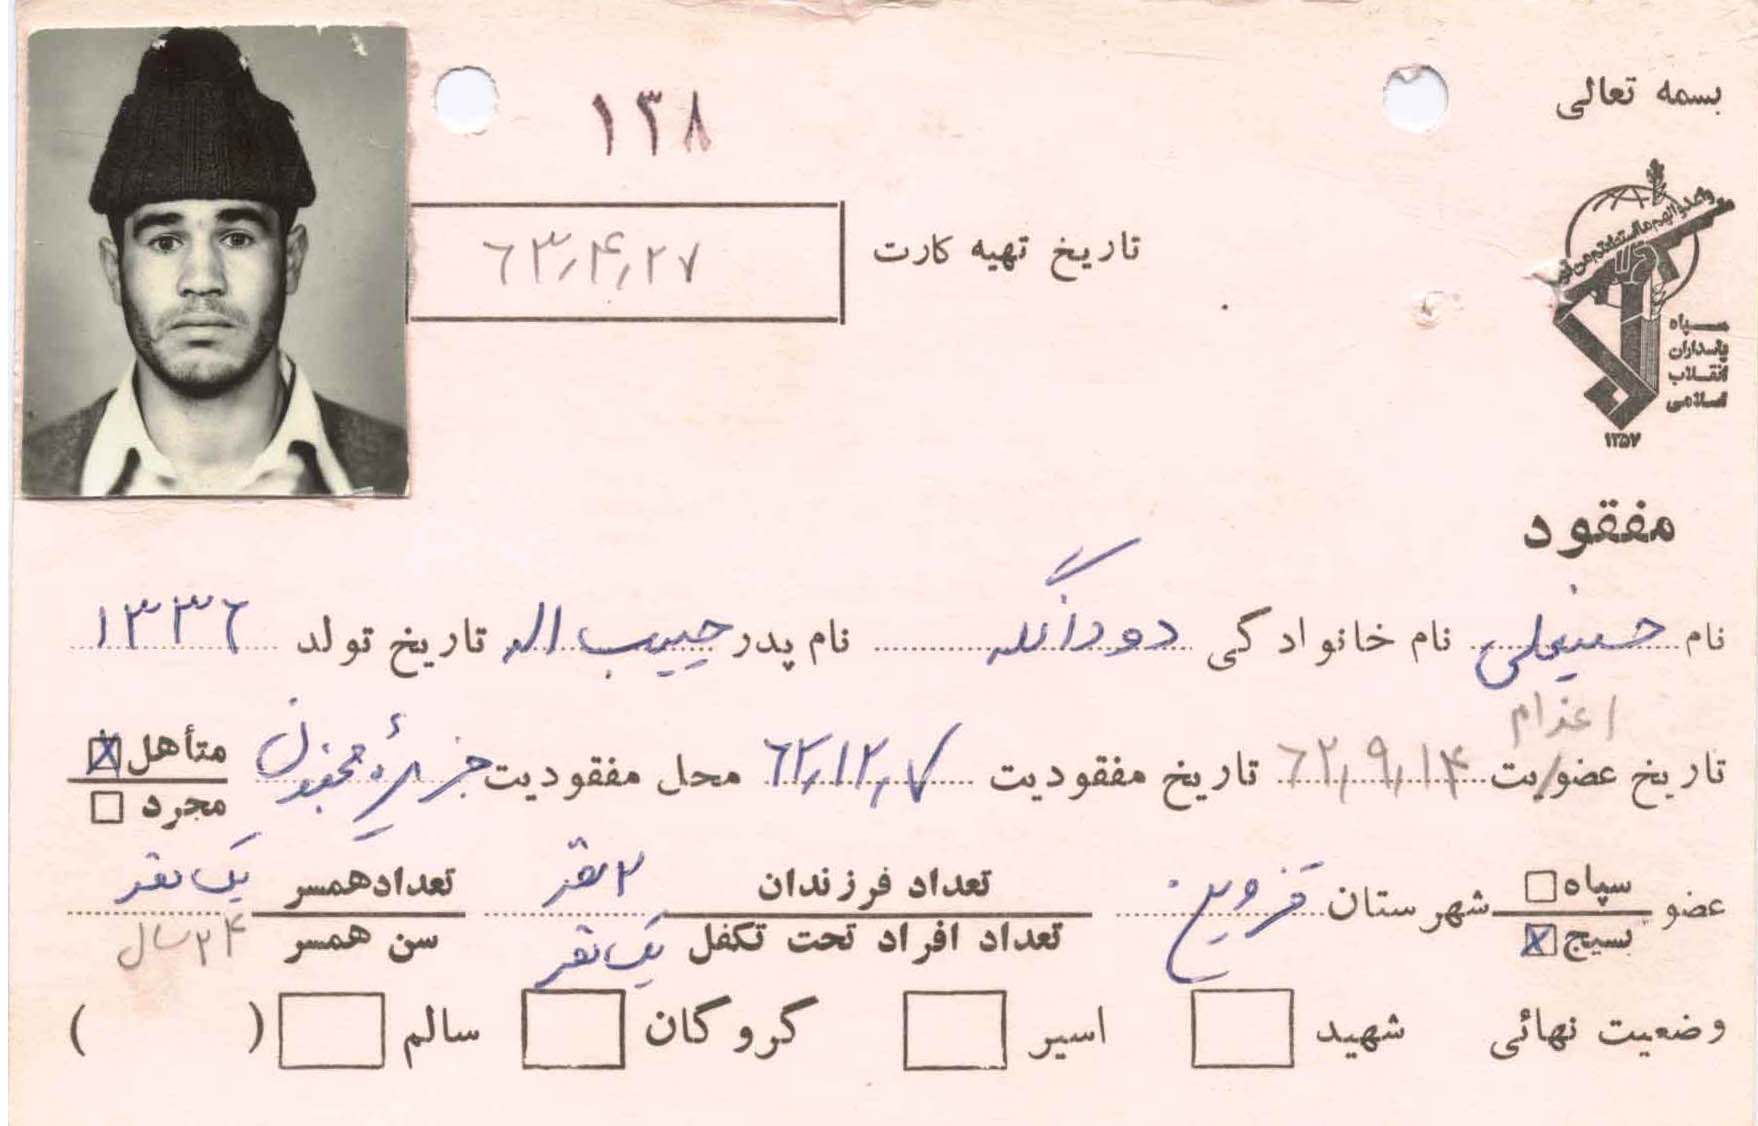 بسمه تعالی
۱۳۸
تاریخ تهیه کارت ۶۳٫۴٫۲۷
سپاه
پاسداران
انقلاب
اسلامی
۱۳۵۷
مفقود
نام حسینعلی نام خانوادگی دودانگه نام پدر حبیب اله تاریخ تولد ۱۳۳۶
اعزام
تاریخ عضویت ۶۲٫۹٫۱۴ تاریخ مفقودیت ۶۲٫۱۲٫۷ محل مفقودیت جزیرهٔ مجنون متأهل
مجرد
عضو سپاه شهرستان قزوین تعداد فرزندان ۲ نفر تعداد همسر یک نفر
بسیج تعداد افراد تحت تکفل یک نفر سن همسر ۲۴ سال
وضعیت نهائی شهید اسیر گروگان سالم ( )